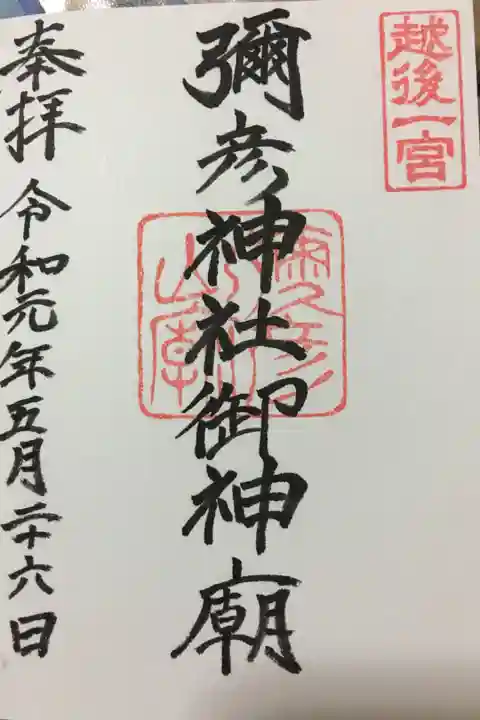 越後一宮
彌彦神社御神廟
奉拝
令和元年五月二十六日